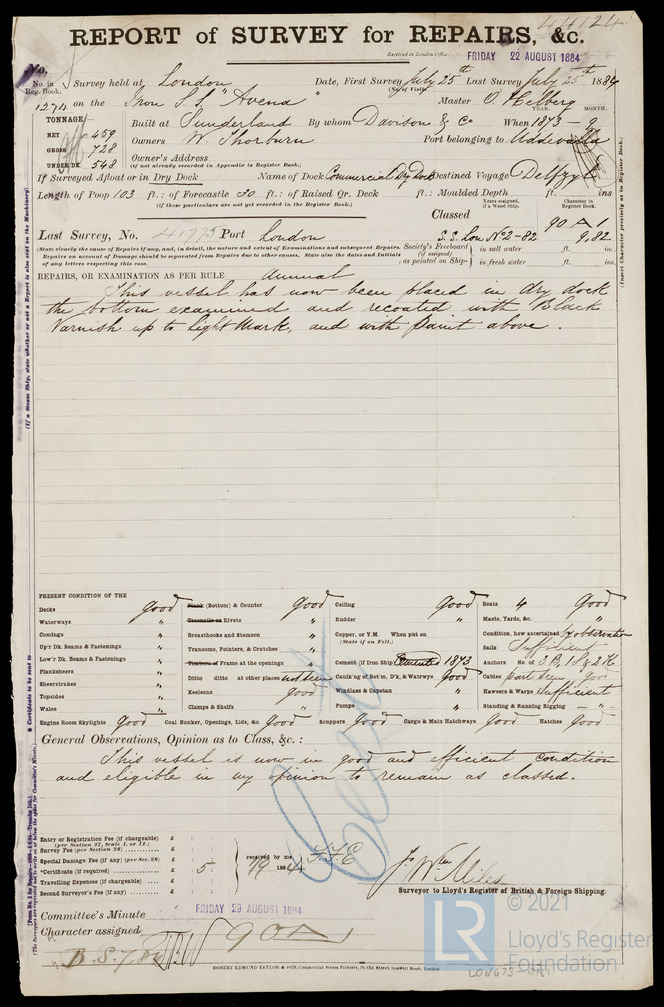 44124
REPORT of SURVEY for REPAIRS, &c.
Received in London Office, FRIDAY 22 AUGUST 1884
No.
No. in Reg. Book. Survey held at London Date, First Survey July 25th Last Survey July 25th 1884
(No. of Visits)
1274 on the Iron S.S. "Avena" Master O. Helberg
TONNAGE. Built at Sunderland By whom Davison & Co When 1873 - 9
YEAR. MONTH.
NET 459 Owners W. Thorburn Port belonging to Uddevalla
GROSS 728
UNDER DK. 548 Owner's Address
(if not already recorded in Appendix to Register Book.)
If Surveyed Afloat or in Dry Dock Name of Dock Commercial Dry Dock Destined Voyage Delfzyl
Length of Poop 103 ft.: of Forecastle 30 ft.: of Raised Qr. Deck ft.: Moulded Depth ft. ins
(if these particulars are not yet recorded in the Register Book.)
Years assigned, if a Wood Ship. Character in Register Book.
Classed 90 A 1
Last Survey, No. 41773 Port London S.S. Lon No 2-82 9.82
(State clearly the cause of Repairs if any, and, in detail, the nature and extent of Examinations and subsequent Repairs.
Repairs on account of Damage should be separated from Repairs due to other causes. State also the dates and Initials
of any letters respecting this case.
Society's Freeboard (if assigned) as painted on Ship- in salt water ft. ins.
in fresh water ft. ins.
REPAIRS, OR EXAMINATION AS PER RULE Annual
This vessel has now been placed in dry dock
the bottom examined and recoated with Black
Varnish up to Light Mark, and with paint above.
PRESENT CONDITION OF THE
Decks good
Waterways "
Comings "
Up'r Dk. Beams & Fastenings "
Low'r Dk. Beams & Fastenings "
Planksheers "
Sheerstrakes "
Topsides "
Wales "
Plank (Bottom) & Counter good
Treenails or Rivets "
Breasthooks and Stemson "
Transoms, Pointers, & Crutches "
Timbers of Frame at the openings "
Ditto ditto at other places not seen
Keelsons good
Clamps & Shelfs "
Ceiling good
Rudder "
Copper, or Y.M. When put on
(State if on Felt.)
Cement (if Iron Ship) Cemented 1873
Caulk'ng of Bot'm, D'k, & Watrwys good
Windlass & Capstan "
Pumps "
Boats 4 Good
Masts, Yards, &c. "
Condition, how ascertained by observation
Sails Sufficient
Anchors No. of 3 B. 1 S. 2 K.
Cables part seen good
Hawsers & Warps Sufficient
Standing & Running Rigging "
Engine Room Skylights Good Coal Bunker, Openings, Lids, &c. Good Scuppers Good Cargo & Main Hatchways Good Hatches Good
General Observations, Opinion as to Class, &c. :
This vessel is now in good and efficient condition
and eligible in my opinion to remain as classed.
Entry or Registration Fee (if chargeable) £
(per Section 27, Scale I. or II.)
Survey Fee (per Section 28) £
Special Damage Fee (if any) (per Sec. 28) £
*Certificate (if required) £ 5
Travelling Expenses (if chargeable) £
Second Surveyor's Fee (if any) £
received by me
19 1884
Js. Wm. Miles
Surveyor to Lloyd's Register of British & Foreign Shipping.
Cert
Committee's Minute FRIDAY 29 AUGUST 1884
Character assigned 90 A
ROBERT EDMUND TAYLOR & SON, Commercial Steam Printers, 19, Old Street, Goswell Road, London
LON673-
(If a Steam Ship, state whether or not a Report is also sent on the Machinery.)
* Certificate to be sent to
(Insert Character precisely as in Register Book.)
LR © 2021
Lloyd's Register
Foundation